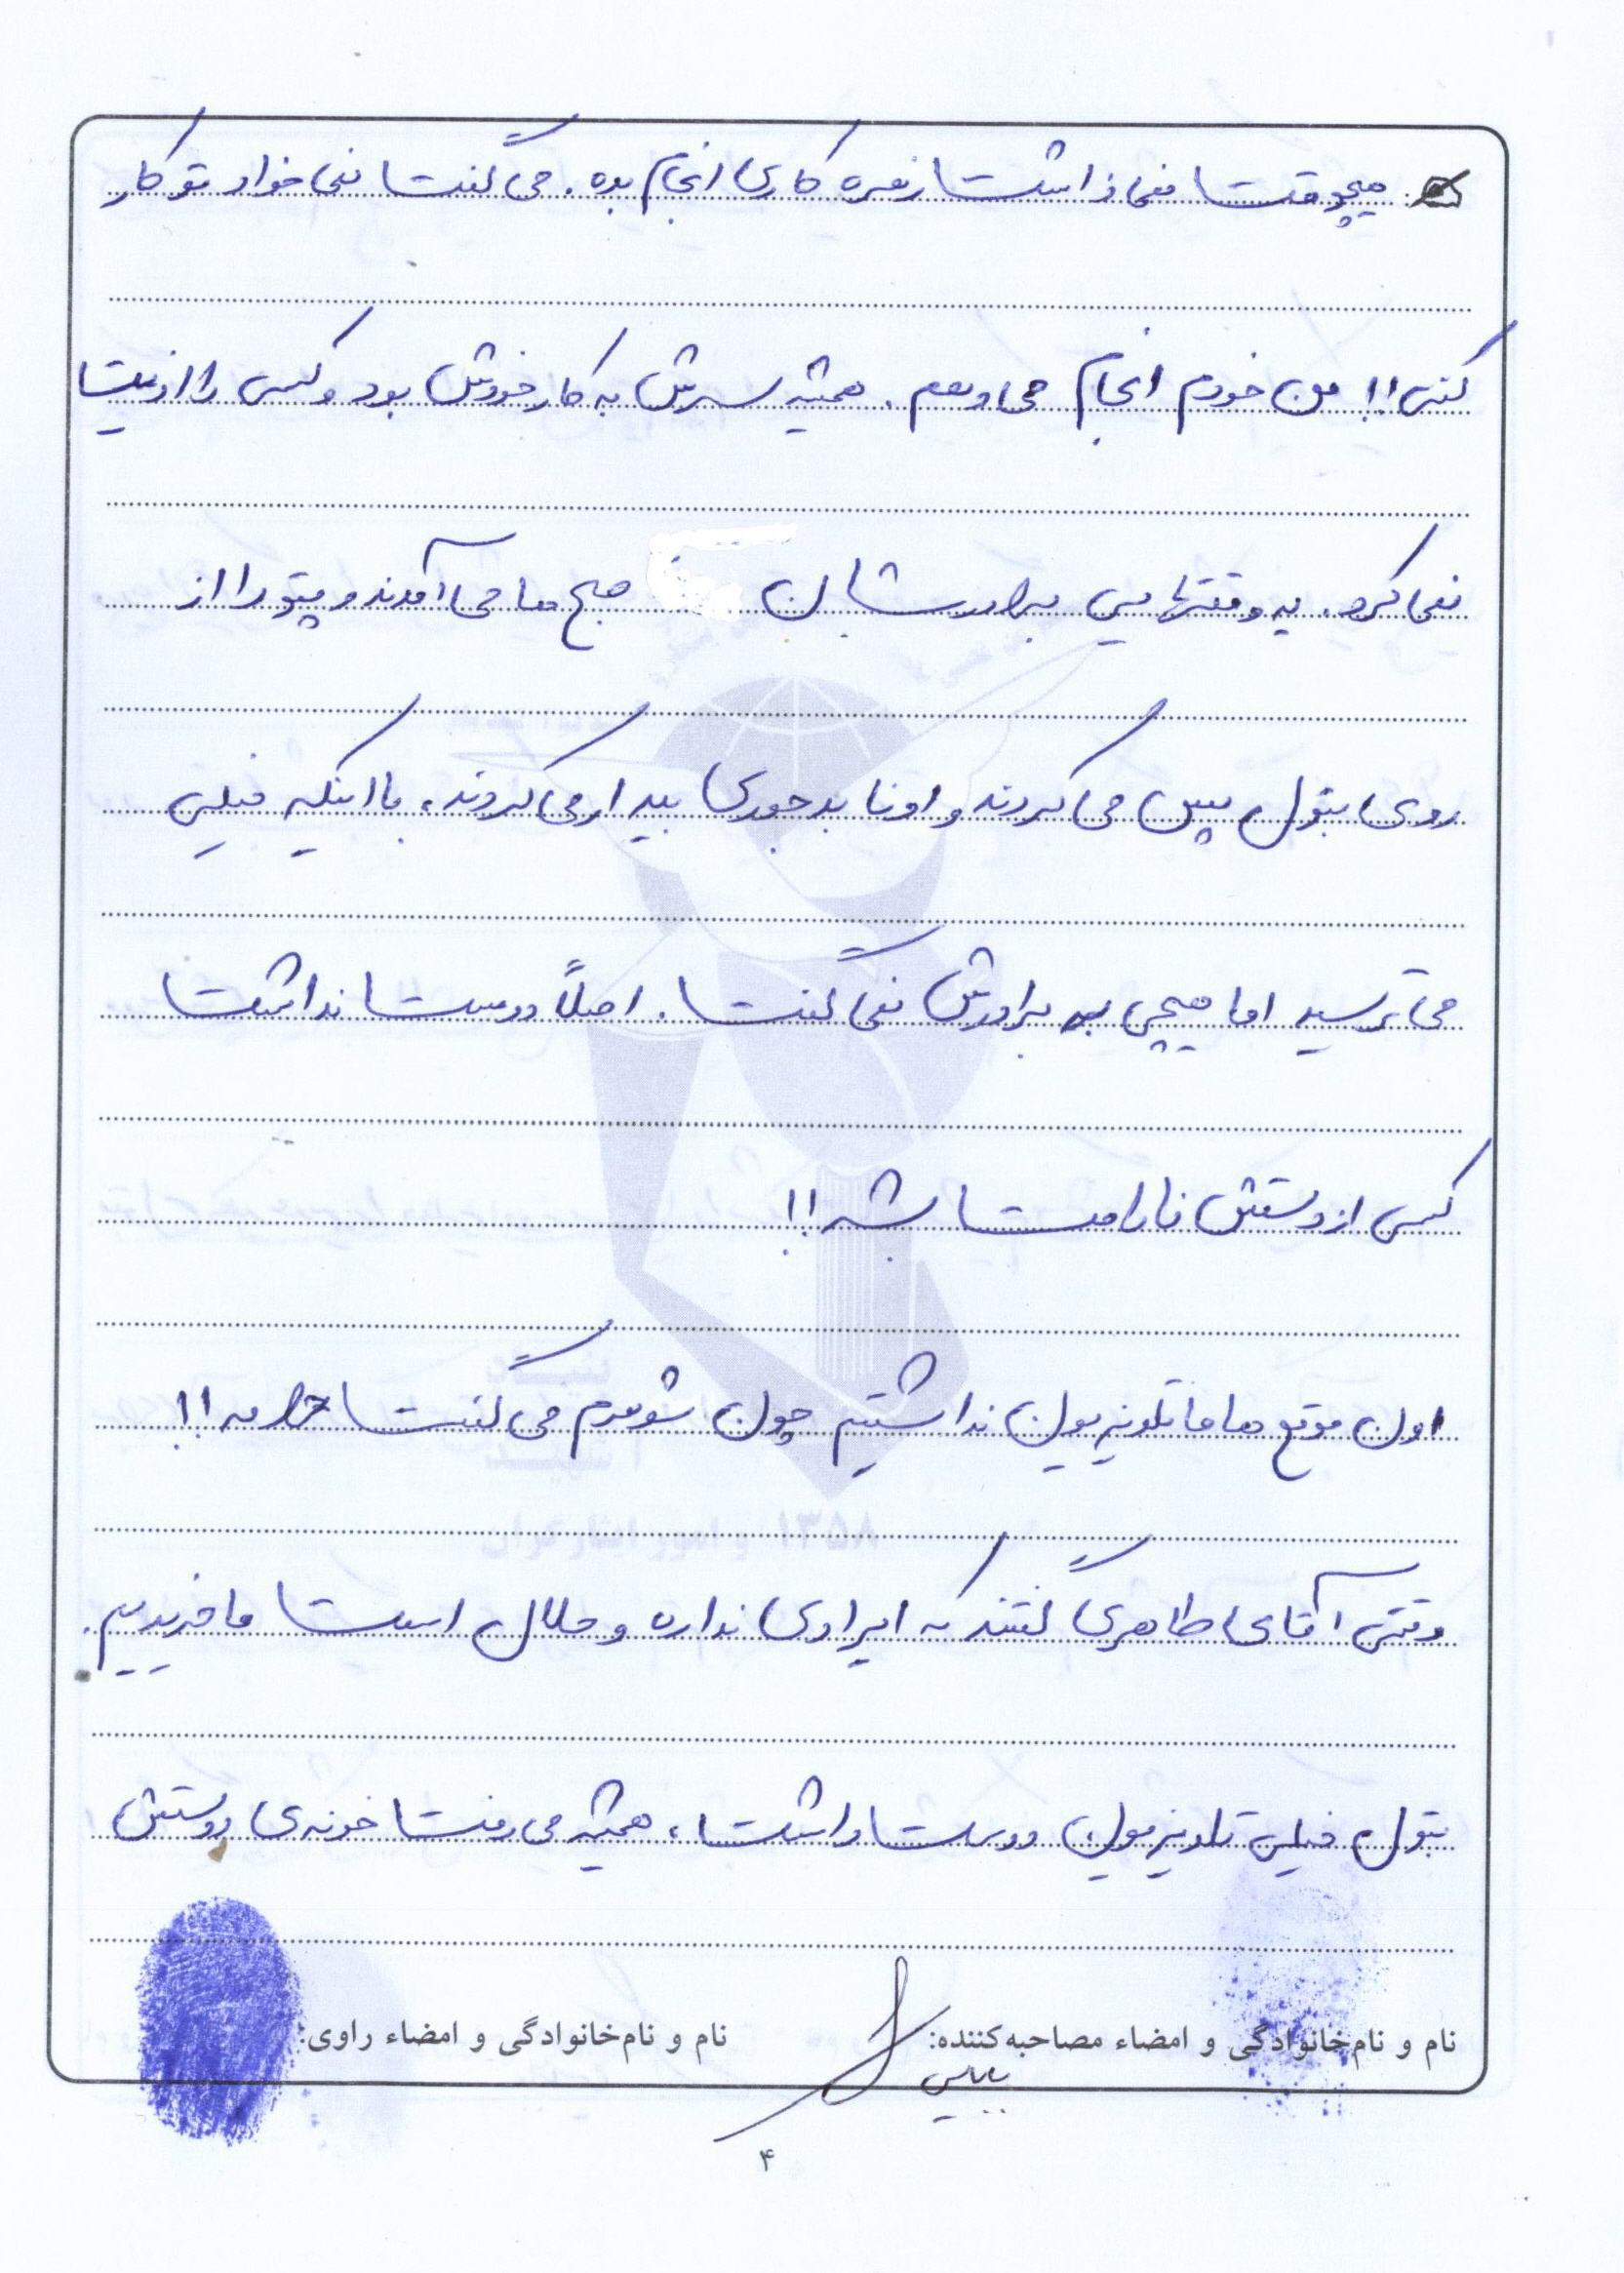 هیچوقت نمی ذاشت زهره کاری انجام بده. می گفت نمی خواد تو کار
کنی!! من خودم انجام می دهم. همیشه سرش به کار خودش بود و کسی را اذیت
نمی کرد. یه وقتهایی برادرشان صبح ها می آمدند و پتو را از
روی بتول پس می کردند و اونا بدجوری بیدار می کردند، با اینکه خیلی
می ترسید اما هیچی به برادرش نمی گفت. اصلاً دوست نداشت
کسی از دستش ناراحت بشه!!
اون موقع ها ما تلویزیون نداشتیم چون شوهرم می گفت حرامه!!
وقتی آقای طاهری گفتند که ایرادی نداره و حلال است ما خریدیم.
بتول خیلی تلویزیون دوست داشت، همیشه می رفت خونه ی دوستش
نام و نام‌خانوادگی و امضاء مصاحبه‌کننده: نام و نام‌خانوادگی و امضاء راوی:
۴